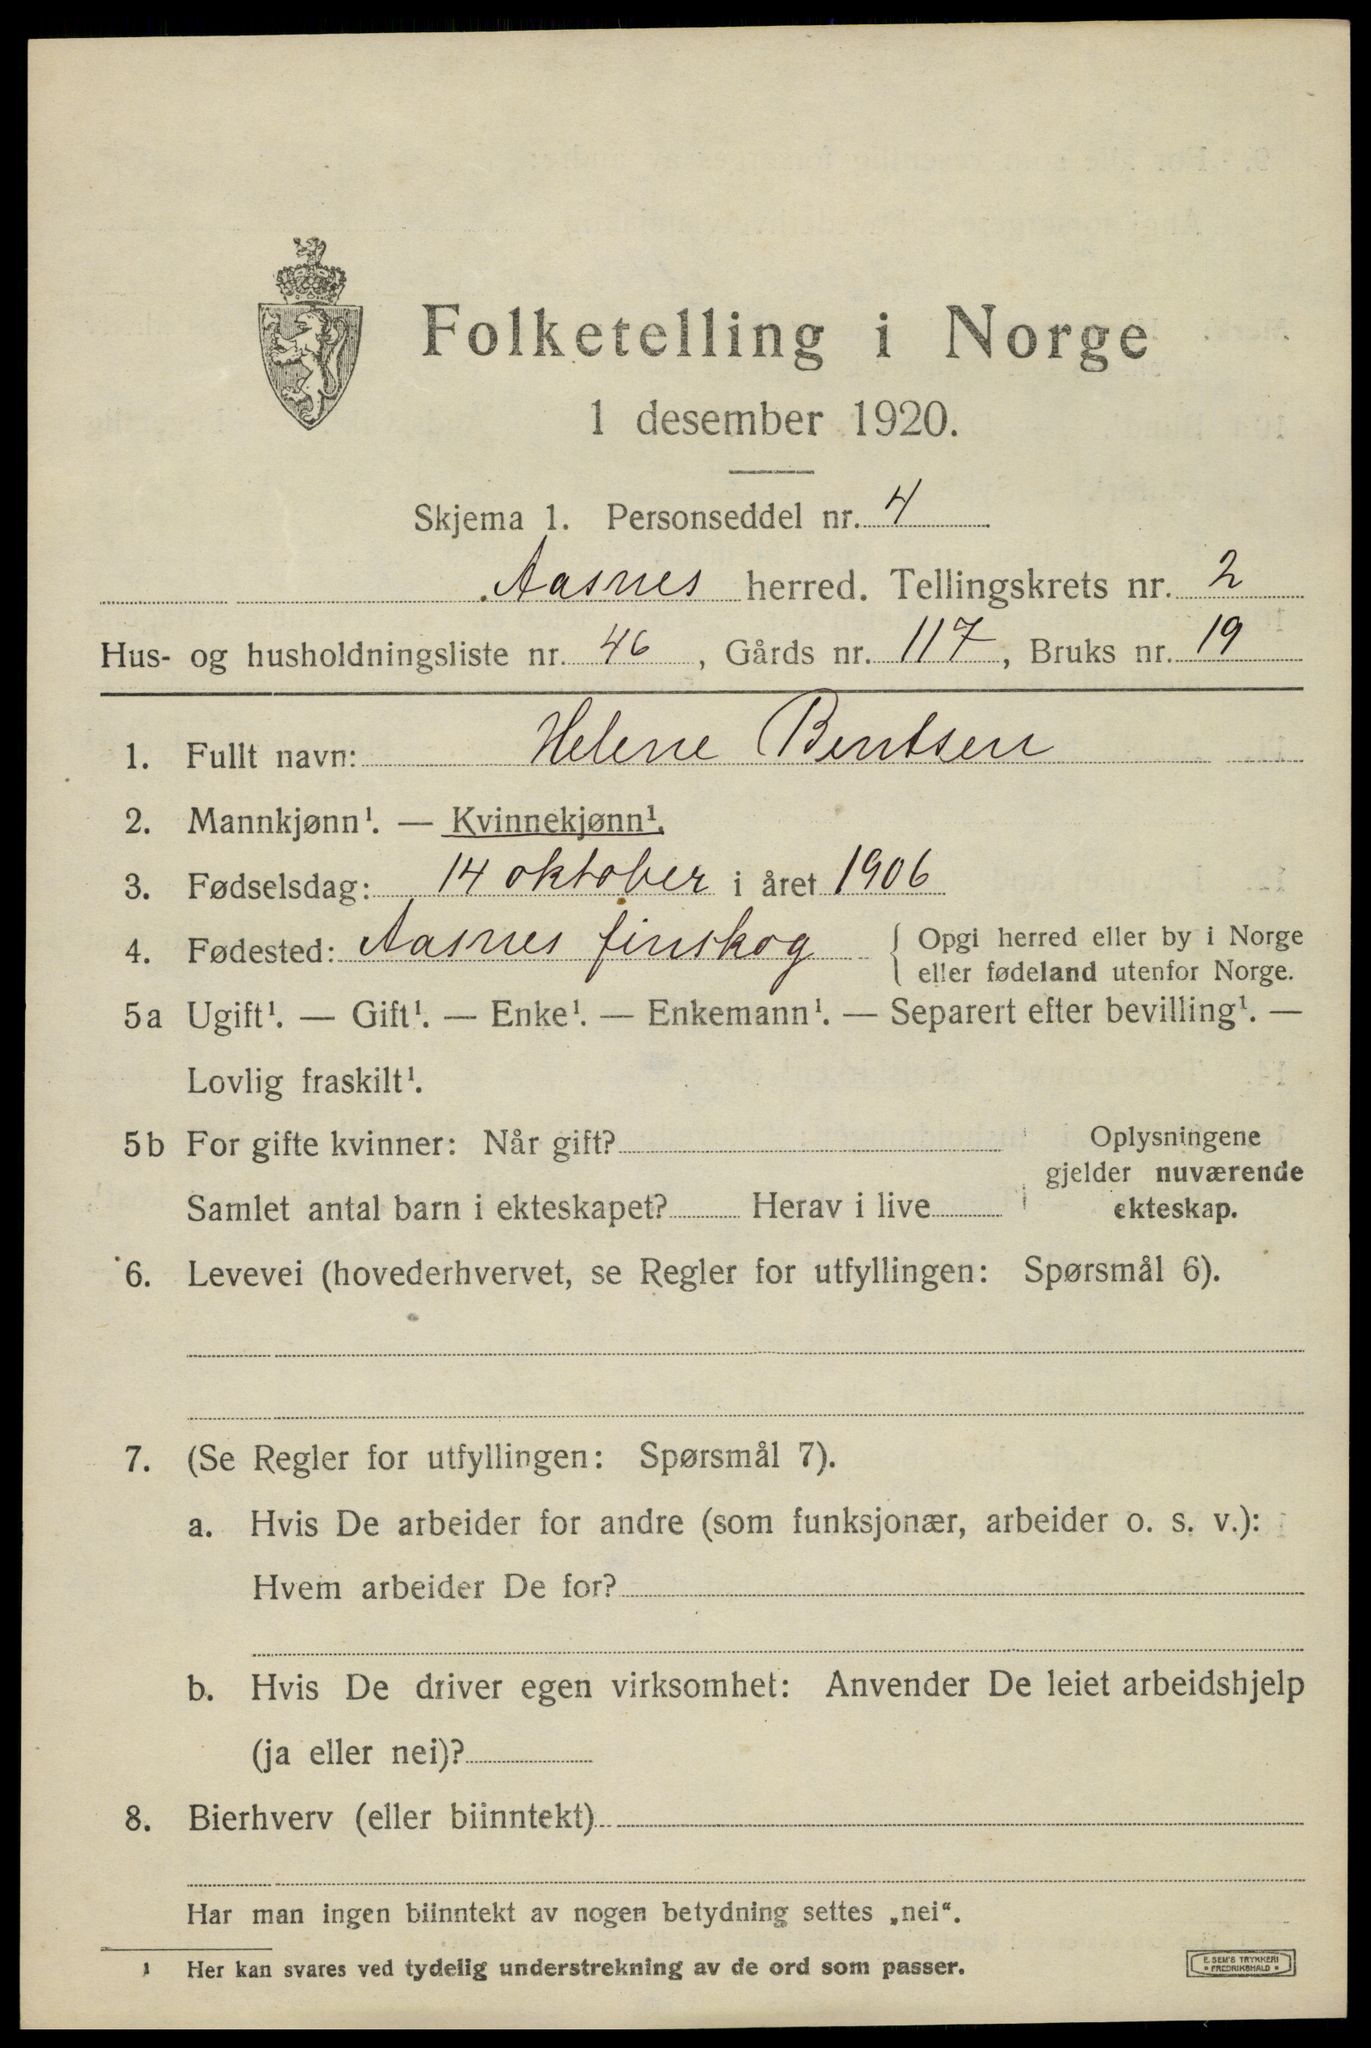 Folketelling i Norge
1 desember 1920.
Skjema 1. Personseddel nr. 4
Aasnes herred. Tellingskrets nr. 2
Hus- og husholdningsliste nr. 46, Gårds nr. 117, Bruks nr. 19
1. Fullt navn: Helene Bentsen
2. Mannkjønn¹. — Kvinnekjønn¹.
3. Fødselsdag: 14 oktober i året 1906
4. Fødested: Aasnes finskog { Opgi herred eller by i Norge
eller fødeland utenfor Norge.
5a Ugift¹. — Gift¹. — Enke¹. — Enkemann¹. — Separert efter bevilling¹. —
Lovlig fraskilt¹.
5b For gifte kvinner: Når gift?
Samlet antal barn i ekteskapet? Herav i live
Oplysningene
gjelder nuværende
ekteskap.
6. Levevei (hovederhvervet, se Regler for utfyllingen: Spørsmål 6).
7. (Se Regler for utfyllingen: Spørsmål 7).
a. Hvis De arbeider for andre (som funksjonær, arbeider o. s. v.):
Hvem arbeider De for?
b. Hvis De driver egen virksomhet: Anvender De leiet arbeidshjelp
(ja eller nei)?
8. Bierhverv (eller biinntekt)
Har man ingen biinntekt av nogen betydning settes „nei“.
¹ Her kan svares ved tydelig understrekning av de ord som passer.
E. SEM'S TRYKKERI
* FREDRIKSHALD *